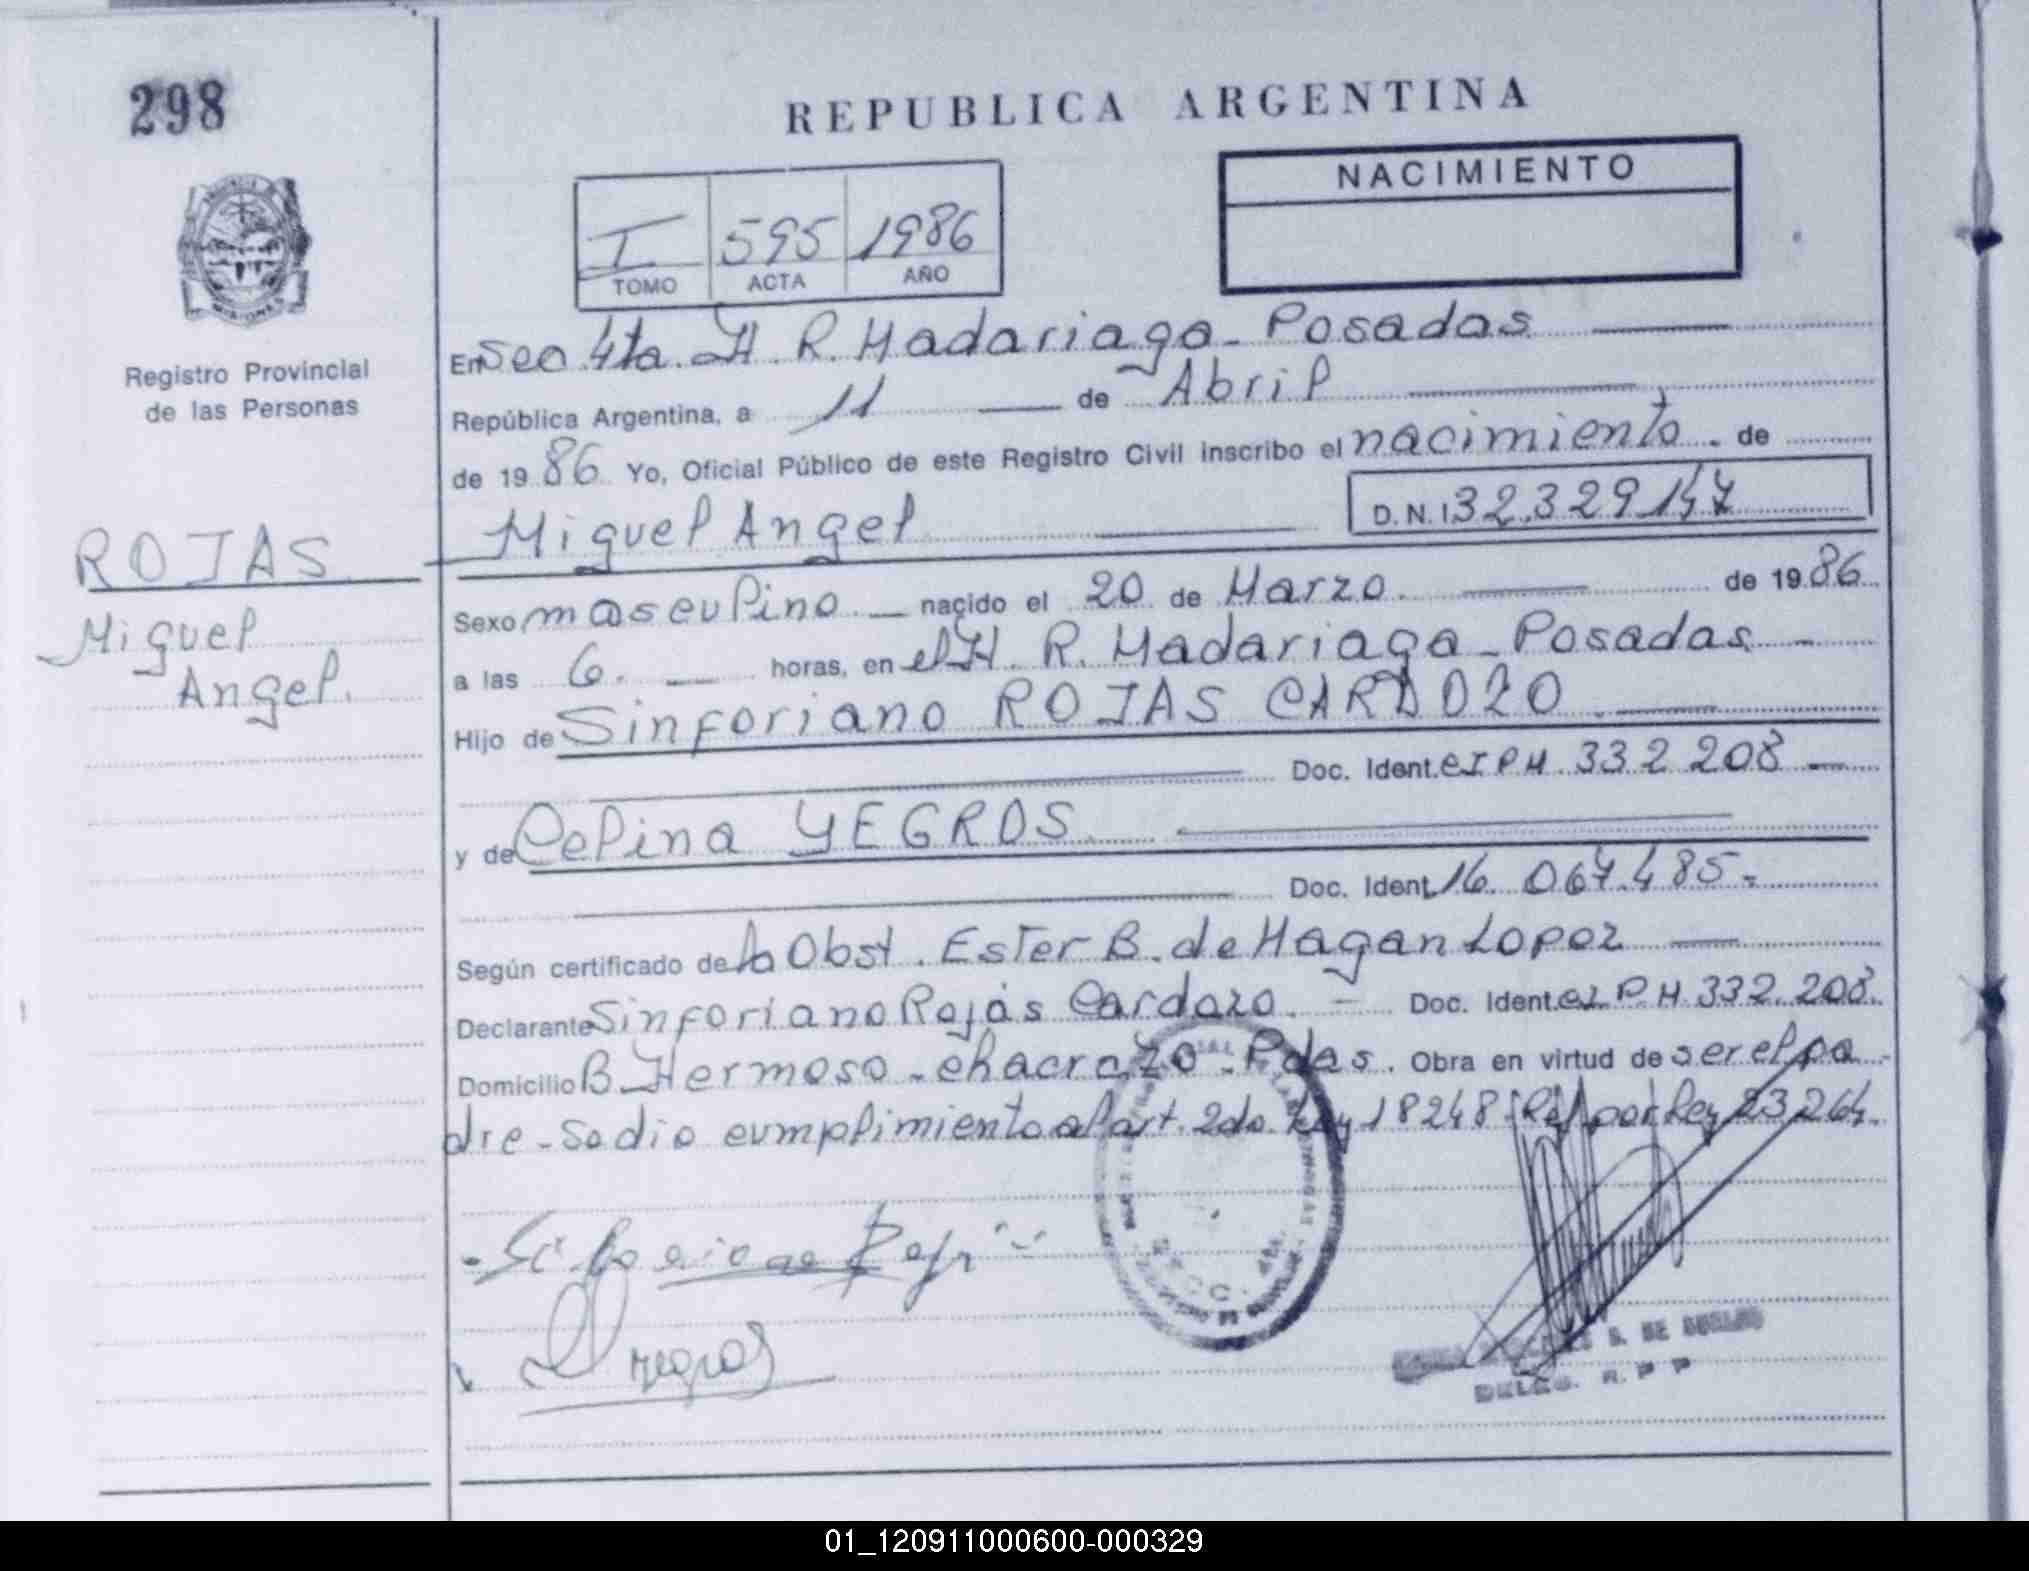 298
REPUBLICA ARGENTINA
NACIMIENTO
I 595 1986
TOMO ACTA AÑO
Registro Provincial
de las Personas
ROJAS
Miguel
Angel.
En Sec. 4ta. H. R. Madariaga - Posadas
República Argentina, a 11 de Abril
de 1986 Yo, Oficial Público de este Registro Civil inscribo el nacimiento. de
Miguel Angel D.N.I 32.329.147
Sexo masculino. nacido el 20 de Marzo. de 1986
a las 6. horas, en el H. R. Madariaga - Posadas
Hijo de Sinforiano ROJAS CARDOZO.
Doc. Ident. CIPM 332 208
y de Celina YEGROS
Doc. Ident. 16.067.485.
Según certificado de la Obst. Ester B. de Hagan Lopez
Declarante Sinforiano Rojas Cardozo. Doc. Ident. CI.P.M. 332 208.
Domicilio B. Hermoso - chacra - Pdas. Obra en virtud de ser el pa
dre - Se dio cumplimiento al art. 2do. Ley 18248 Ref por Ley 23264.
Yegros
S. DE
DELEG. R. P P
01_120911000600-000329